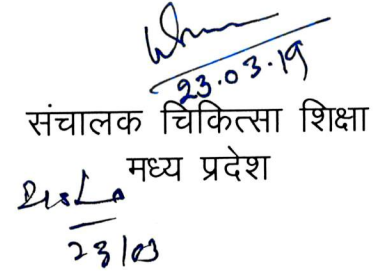 23.03.19
संचालक चिकित्सा शिक्षा
मध्य प्रदेश
23/03